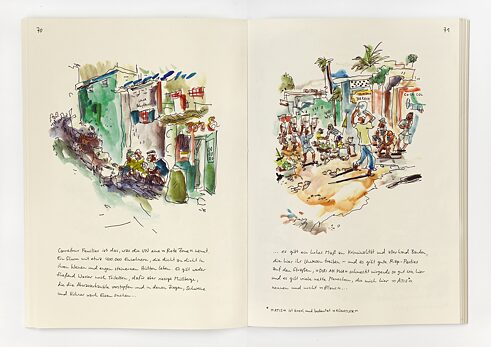 70
Carrefour Feuilles ist das, was die UN eine »Rote Zone« nennt.
Ein Slum mit etwa 400.000 Einwohnern, die dicht an dicht in
ihren kleinen und engen steinernen Hütten leben. Es gibt weder
fließend Wasser noch Toiletten, dafür aber riesige Müllberge,
die die Abwasserkanäle verstopfen und in denen Ziegen, Schweine
und Hühner nach Essen suchen...
71
... es gibt ein hohes Maß an Kriminalität und etwa hundert Banden,
die hier ihr Unwesen treiben – und es gibt gute Rap-Partys
auf den Straßen,
schmeckt nirgends so gut wie hier
und es gibt viele nette Menschen, die mich hier »Atis«*
nennen und nicht »Blanc«...
* »ATIS« ist kreol und bedeutet »KÜNSTLER«